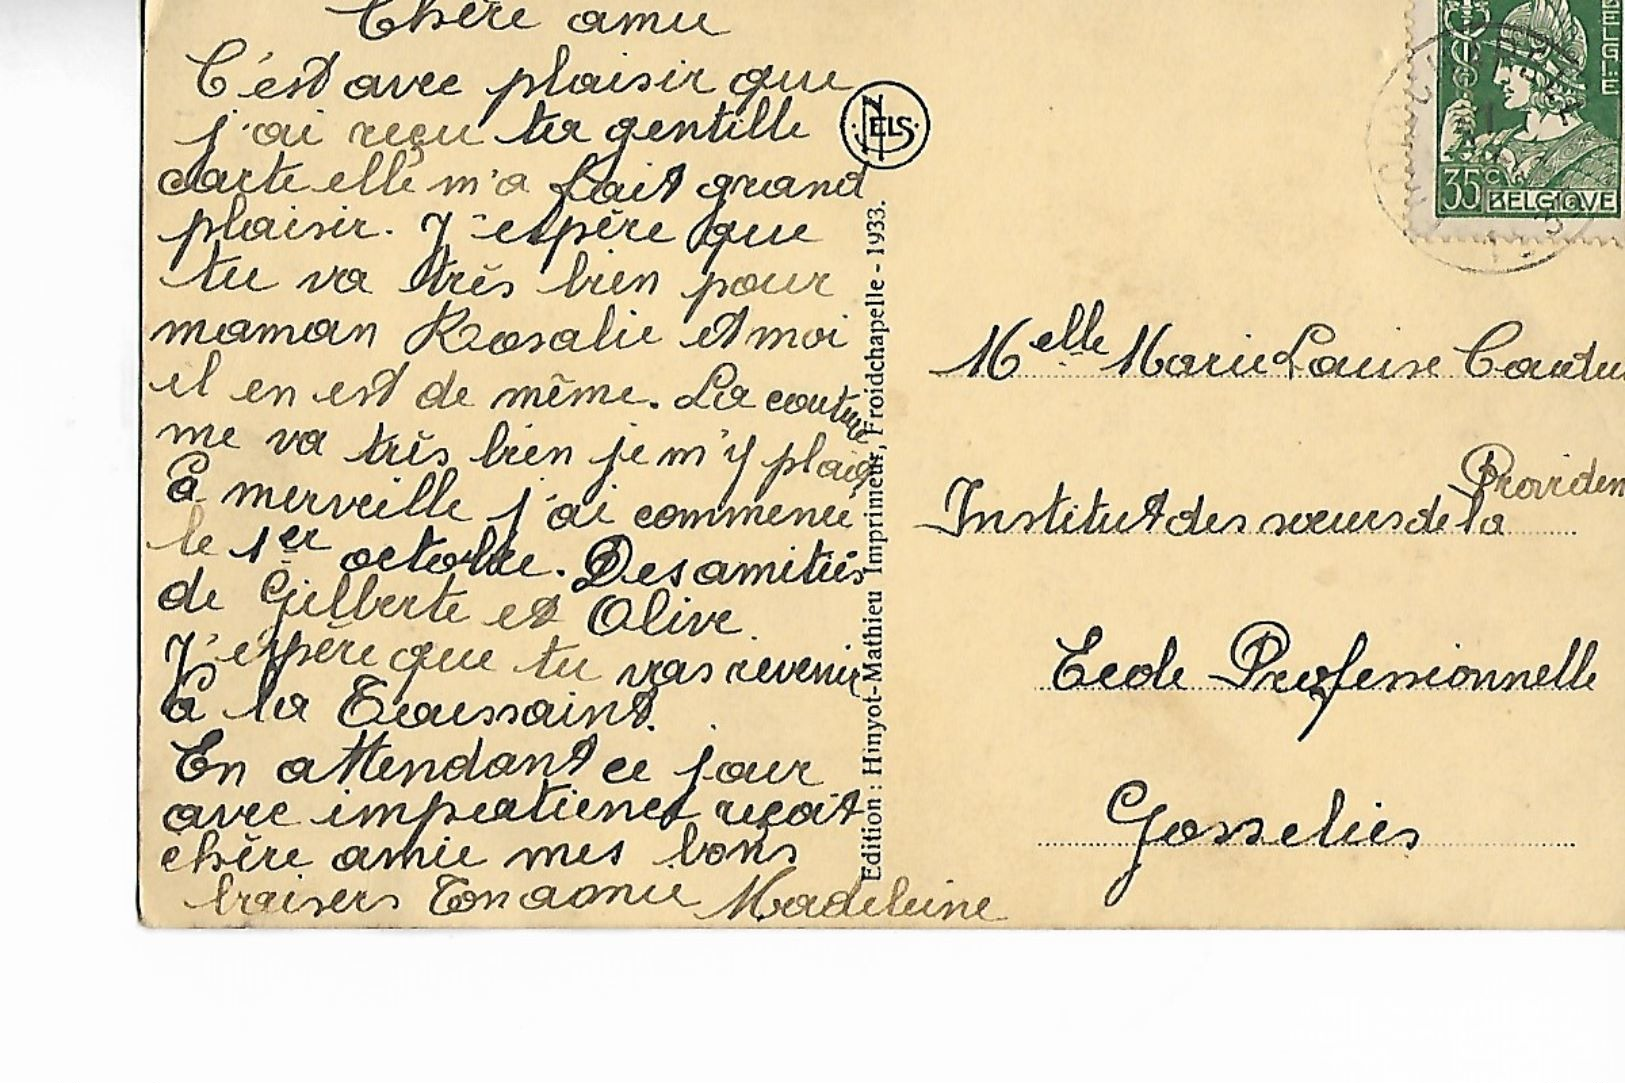 Chère amie
C'est avec plaisir que
j'ai reçu ta gentille
carte elle m'a fait grand
plaisir. J'espère que
tu va très bien pour
maman Rosalie et moi
il en est de même. La couture
me va très bien je m'y plais
à merveille j'ai commencé
le 1er octobre. Des amitiés
de Gilberte et Olive.
J'espère que tu vas revenir
à la Toussaint.
En attendant ce jour
avec impatience reçoit
chère amie mes bons
baisers Ton amie Madeleine
NELS
Edition : Hinyot-Mathieu Imprimeur, Froidchapelle - 1933.
BELGIE
35c BELGIQUE
Melle Marie Louise
Providen
Institut des sœurs de la
Ecole Professionnelle
Gosselies